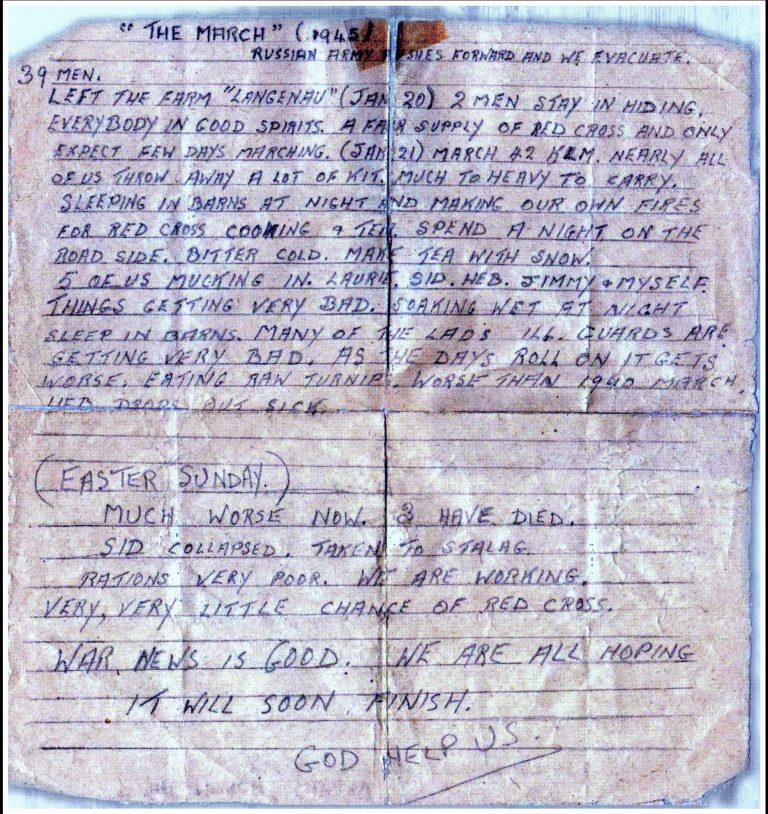 "THE MARCH" (1945)
RUSSIAN ARMY PUSHES FORWARD AND WE EVACUATE.
39 MEN.
LEFT THE FARM "LANGENAU" (JAN 20) 2 MEN STAY IN HIDING.
EVERYBODY IN GOOD SPIRITS. A FAIR SUPPLY OF RED CROSS AND ONLY
EXPECT FEW DAYS MARCHING. (JAN 21) MARCH 42 KLM. NEARLY ALL
OF US THROW AWAY A LOT OF KIT. MUCH TO HEAVY TO CARRY.
SLEEPING IN BARNS AT NIGHT AND MAKING OUR OWN FIRES
FOR RED CROSS COOKING & TEA. SPEND A NIGHT ON THE
ROAD SIDE. BITTER COLD. MAKE TEA WITH SNOW.
5 OF US MUCKING IN. LAURIE. SID. HEB. JIMMY & MYSELF.
THINGS GETTING VERY BAD. SOAKING WET AT NIGHT
SLEEP IN BARNS. MANY OF THE LADS ILL. GUARDS ARE
GETTING VERY BAD. AS THE DAYS ROLL ON IT GETS
WORSE. EATING RAW TURNIPS. WORSE THAN 1940 MARCH.
HEB DROPS OUT SICK
(EASTER SUNDAY.)
MUCH WORSE NOW. 3 HAVE DIED.
SID COLLAPSED. TAKEN TO STALAG.
RATIONS VERY POOR. WE ARE WORKING.
VERY, VERY LITTLE CHANCE OF RED CROSS.
WAR NEWS IS GOOD. WE ARE ALL HOPING
IT WILL SOON FINISH.
GOD HELP US.